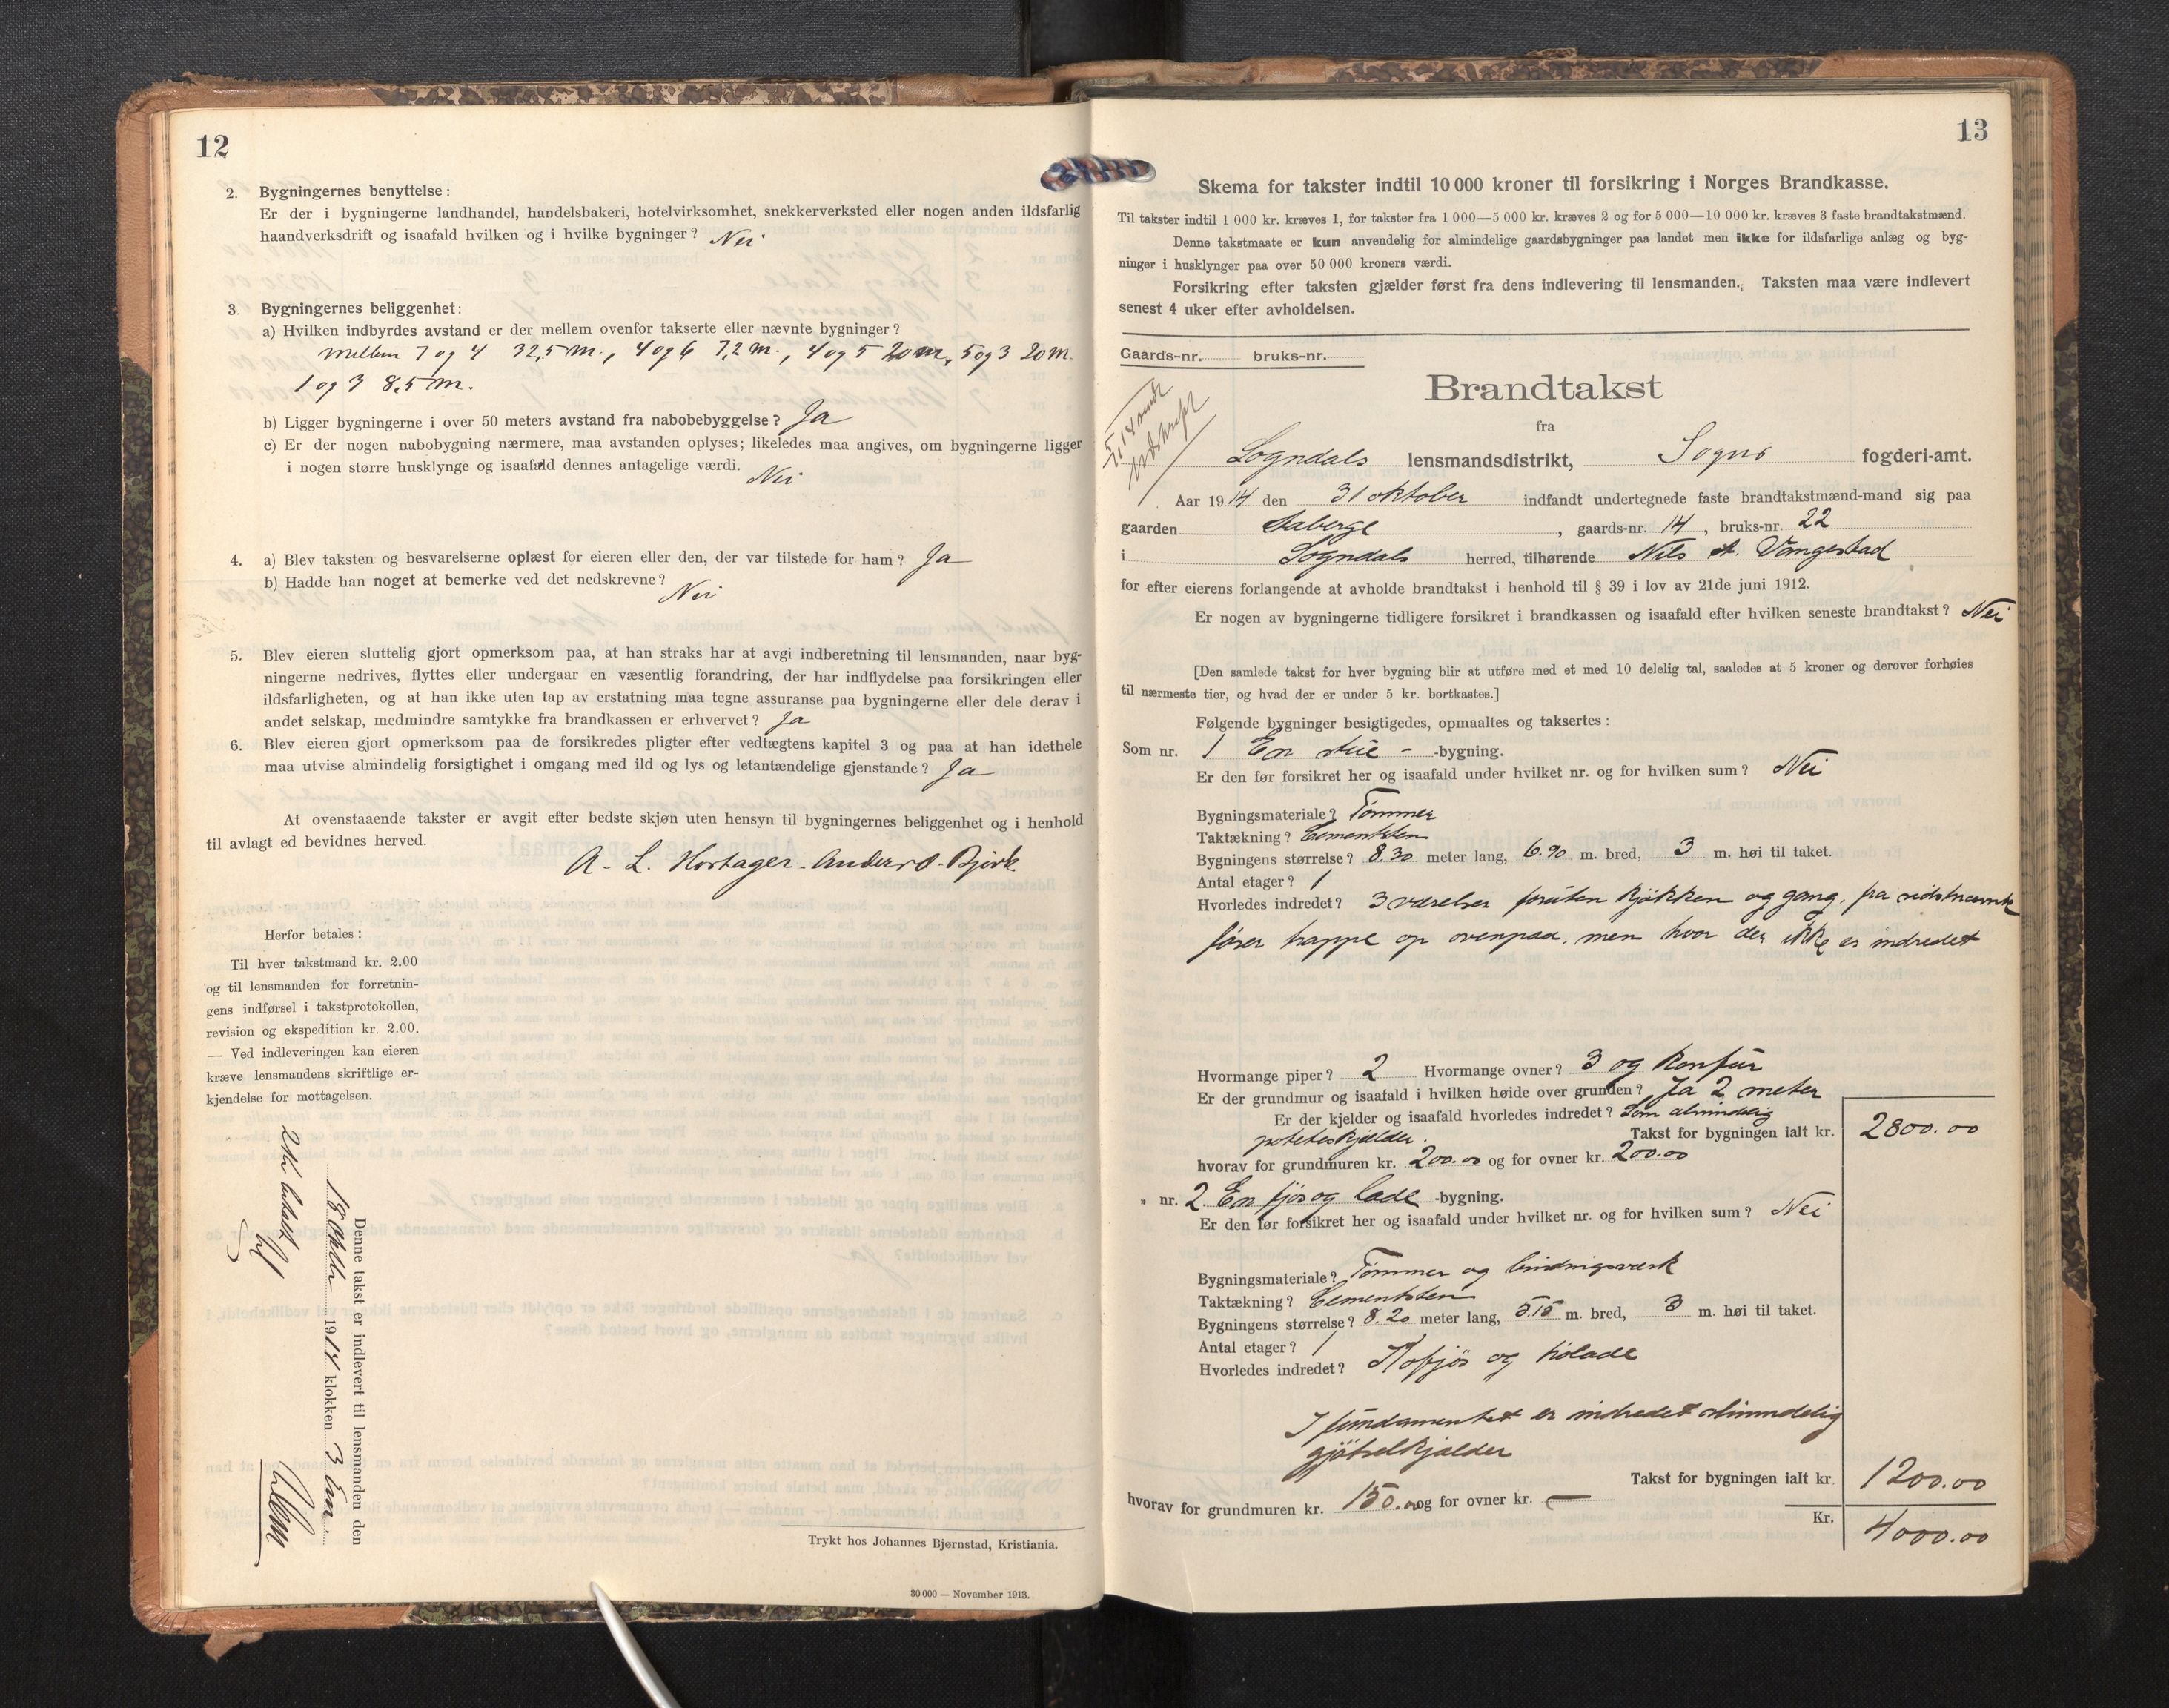 12
2. Bygningernes benyttelse:
Er der i bygningerne landhandel, handelsbakeri, hotelvirksomhet, snekkerverksted eller nogen anden ildsfarlig
haandverksdrift og isaafald hvilken og i hvilke bygninger? Nei
3. Bygningernes beliggenhet:
a) Hvilken indbyrdes avstand er der mellem ovenfor takserte eller nævnte bygninger?
Mellem 7 og 4 32,5 m., 4 og 6 7,2 m., 4 og 5 20 m, 5 og 3 20 m.
1 og 3 8,5 m.
b) Ligger bygningerne i over 50 meters avstand fra nabobebyggelse? Ja
c) Er der nogen nabobygning nærmere, maa avstanden oplyses; likeledes maa angives, om bygningerne ligger
i nogen større husklynge og isaafald dennes antagelige værdi. Nei
4. a) Blev taksten og besvarelserne oplæst for eieren eller den, der var tilstede for ham? Ja
b) Hadde han noget at bemerke ved det nedskrevne? Nei
5. Blev eieren sluttelig gjort opmerksom paa, at han straks har at avgi indberetning til lensmanden, naar byg-
ningerne nedrives, flyttes eller undergaar en væsentlig forandring, der har indflydelse paa forsikringen eller
ildsfarligheten, og at han ikke uten tap av erstatning maa tegne assuranse paa bygningerne eller dele derav i
andet selskap, medmindre samtykke fra brandkassen er erhvervet? Ja
6. Blev eieren gjort opmerksom paa de forsikredes pligter efter vedtægtens kapitel 3 og paa at han idethele
maa utvise almindelig forsigtighet i omgang med ild og lys og letantændelige gjenstande? Ja
At ovenstaaende takster er avgit efter bedste skjøn uten hensyn til bygningernes beliggenhet og i henhold
til avlagt ed bevidnes herved.
A. L. Hortager Anders O. Bjørk
Herfor betales:
Til hver takstmand kr. 2.00
og til lensmanden for forretnin-
gens indførsel i takstprotokollen,
revision og ekspedition kr. 2.00.
— Ved indleveringen kan eieren
kræve lensmandens skriftlige er-
kjendelse for mottagelsen.
Denne takst er indlevert til lensmanden den
18 1914 klokken 3 em.
2 kr betalt
Trykt hos Johannes Bjørnstad, Kristiania.
30 000 — November 1913.
13
Skema for takster indtil 10 000 kroner til forsikring i Norges Brandkasse.
Til takster indtil 1 000 kr. kræves 1, for takster fra 1 000—5 000 kr. kræves 2 og for 5 000—10 000 kr. kræves 3 faste brandtakstmænd.
Denne takstmaate er kun anvendelig for almindelige gaardsbygninger paa landet men ikke for ildsfarlige anlæg og byg-
ninger i husklynger paa over 50 000 kroners værdi.
Forsikring efter taksten gjælder først fra dens indlevering til lensmanden. Taksten maa være indlevert
senest 4 uker efter avholdelsen.
Gaards-nr. bruks-nr.
Brandtakst
fra
Sogndals lensmandsdistrikt, Sogns fogderi-amt.
Aar 1914 den 31 oktober indfandt undertegnede faste brandtakstmænd-mand sig paa
gaarden Staberge, gaards-nr. 14, bruks-nr. 22
i Sogndals herred, tilhørende Nils A. Vangestad
for efter eierens forlangende at avholde brandtakst i henhold til § 39 i lov av 21de juni 1912.
Er nogen av bygningerne tidligere forsikret i brandkassen og isaafald efter hvilken seneste brandtakst? Nei
[Den samlede takst for hver bygning blir at utføre med et med 10 delelig tal, saaledes at 5 kroner og derover forhøies
til nærmeste tier, og hvad der er under 5 kr. bortkastes.]
Følgende bygninger besigtigedes, opmaaltes og taksertes:
Som nr. 1 En stue- -bygning.
Er den før forsikret her og isaafald under hvilket nr. og for hvilken sum? Nei
Bygningsmateriale? Tømmer
Taktækning? Cementsten
Bygningens størrelse? 8.30 meter lang, 6.90 m. bred, 3 m. høi til taket.
Antal etager? 1
Hvorledes indredet? 3 værelser foruten kjøkken og gang, fra sidstnævnte
fører trappe op ovenpaa, men hvor der ikke er indredet
Hvormange piper? 2 Hvormange ovner? 3 og komfur
Er der grundmur og isaafald i hvilken høide over grunden? Ja 2 meter
Er der kjelder og isaafald hvorledes indredet? Som almindelig
poteteskjelder. Takst for bygningen ialt kr. 2800.00
hvorav for grundmuren kr. 200.00 og for ovner kr. 200.00
" nr. 2 En fjøs og lade -bygning.
Er den før forsikret her og isaafald under hvilket nr. og for hvilken sum? Nei
Bygningsmateriale? Tømmer og bindingsverk
Taktækning? Cementsten
Bygningens størrelse? 8.20 meter lang, 5.15 m. bred, 3 m. høi til taket.
Antal etager? 1
Hvorledes indredet? Kofjøs og hølade
I fundamentet er indredet almindelig
gjødselkjælder
Takst for bygningen ialt kr. 1200.00
hvorav for grundmuren kr. 150.00 og for ovner kr. —
Kr. 4000.00